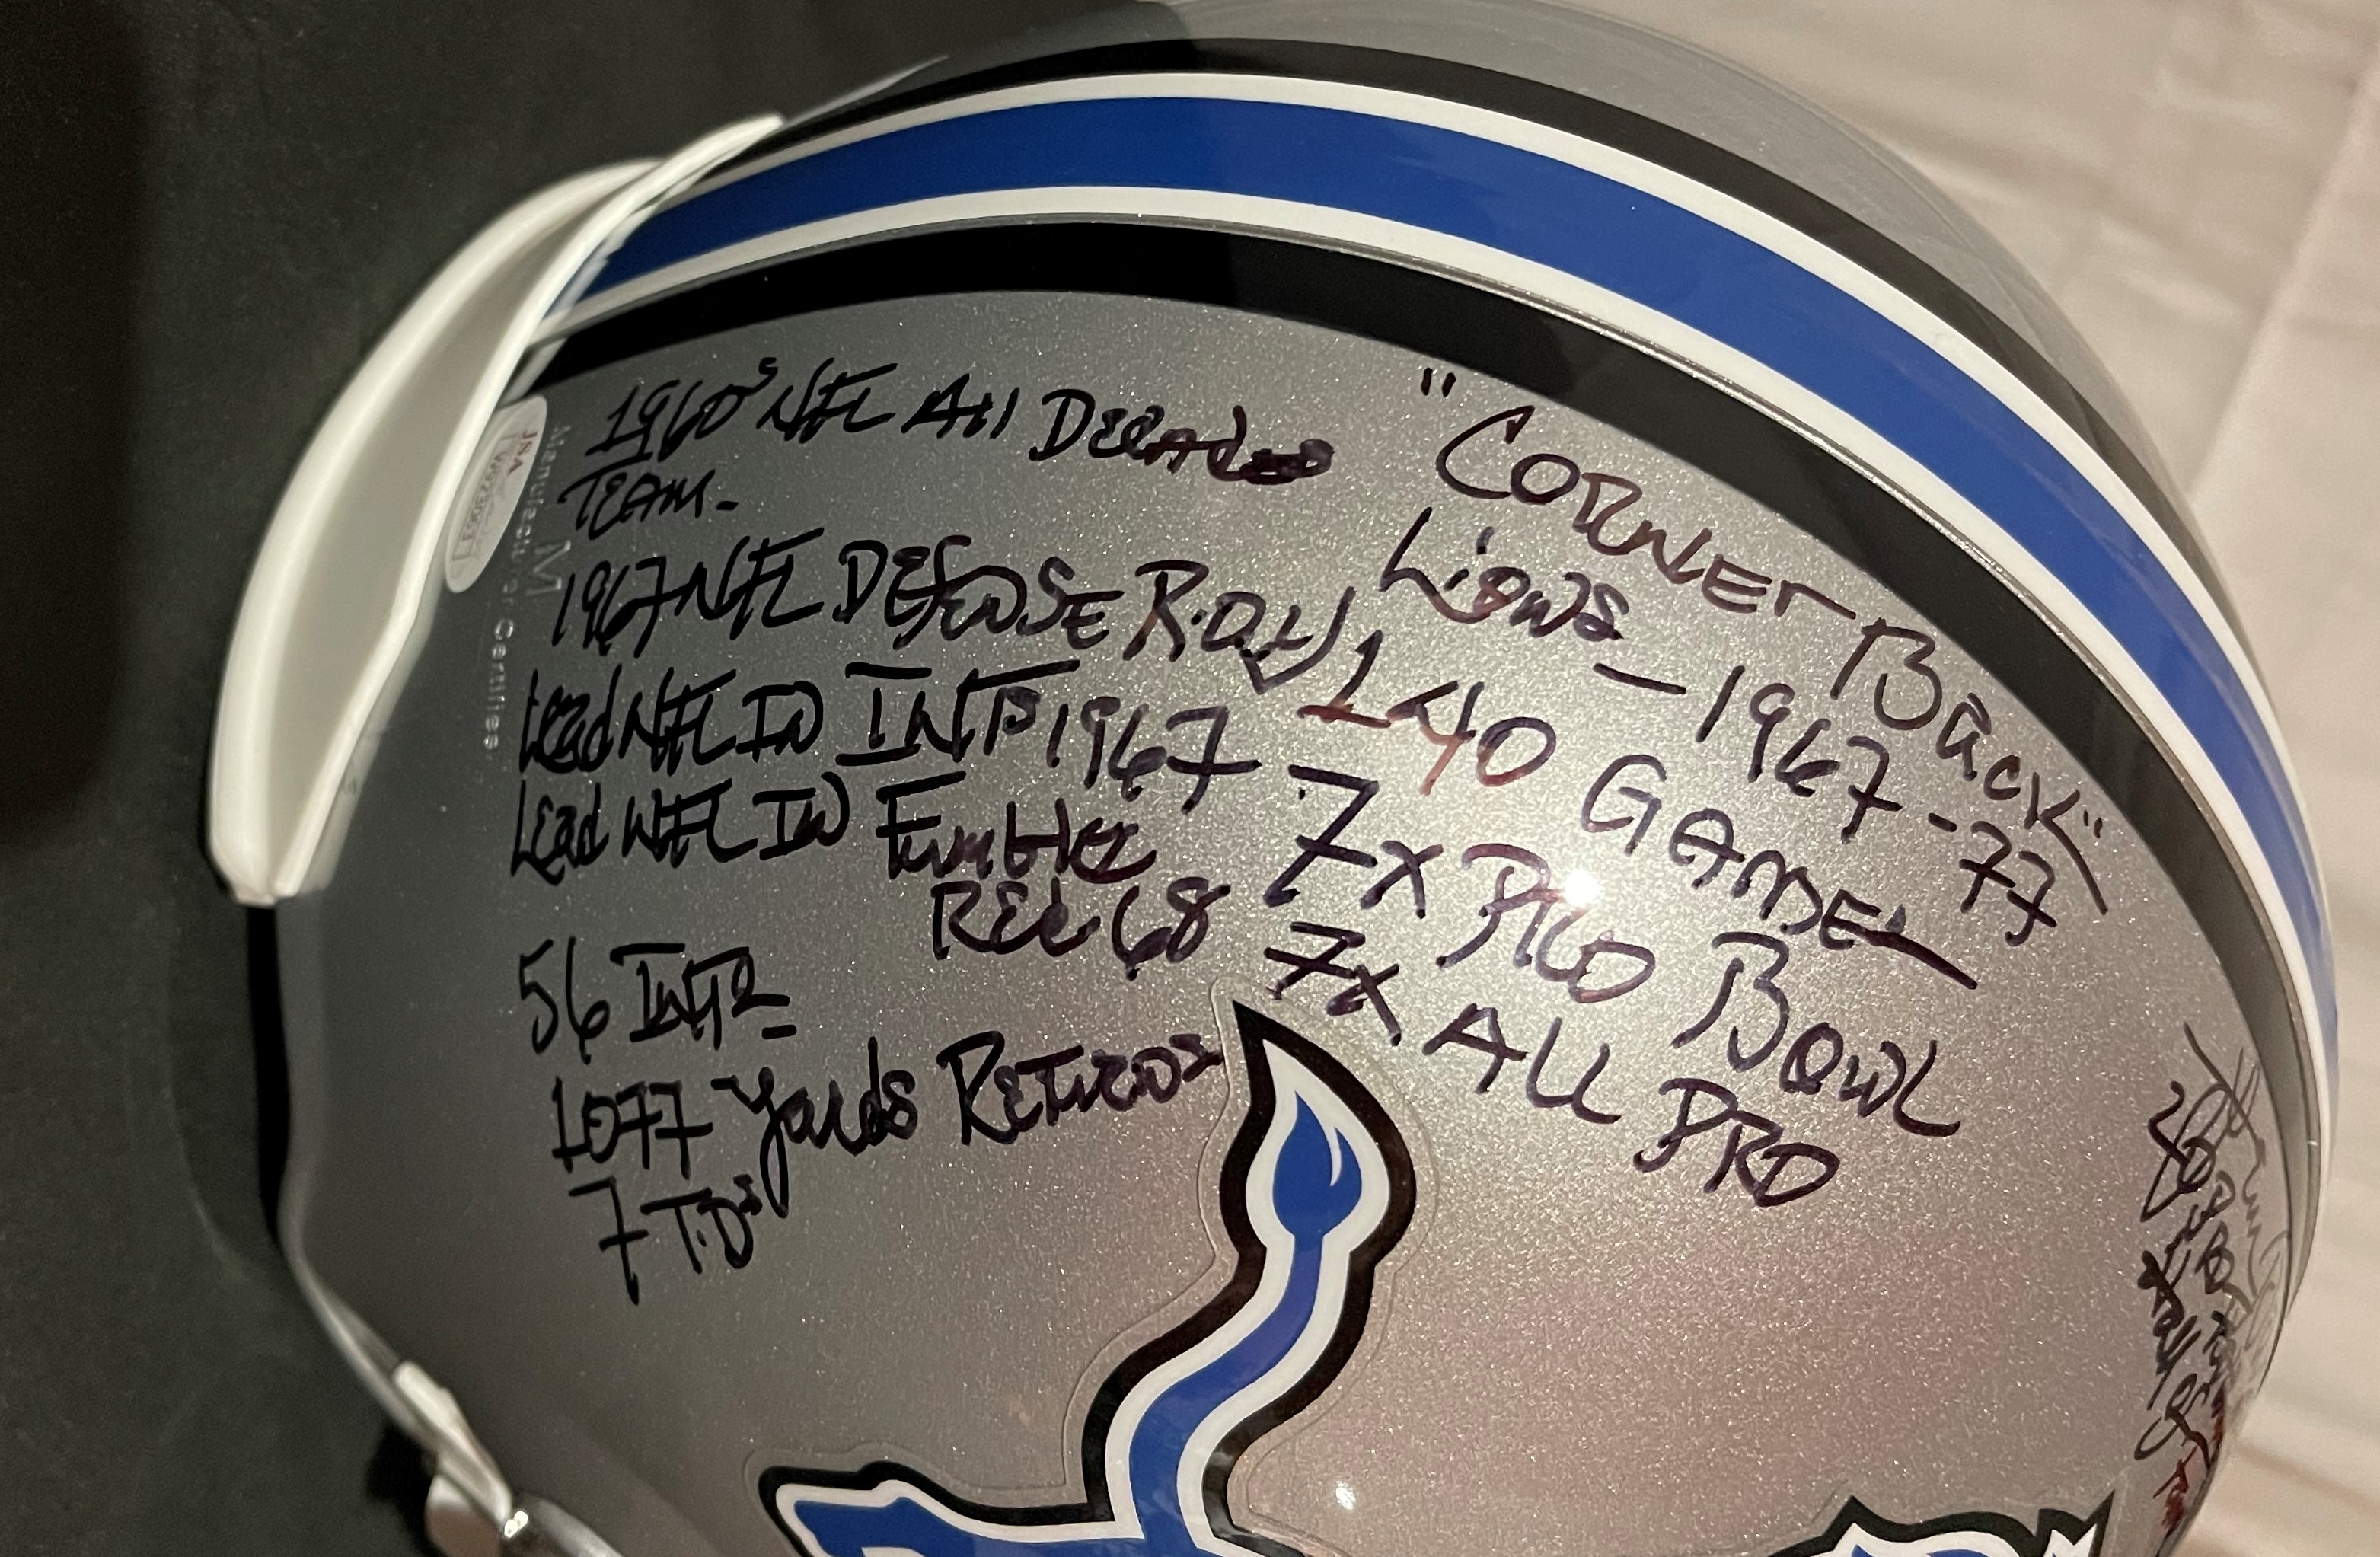 1960s NFL All Decades
TEAM-
1967 NFL DEFENSE R.O.Y
Lead NFL IN INTs 1967
Lead NFL IN Fumble
REC 68
56 INTs
1077 Yards Returns
7 T.Ds
"CORNER BACK"
Lions - 1967-77
140 GAMES
7x PRO BOWL
7x ALL PRO
JSA
Manufacturer Certifies